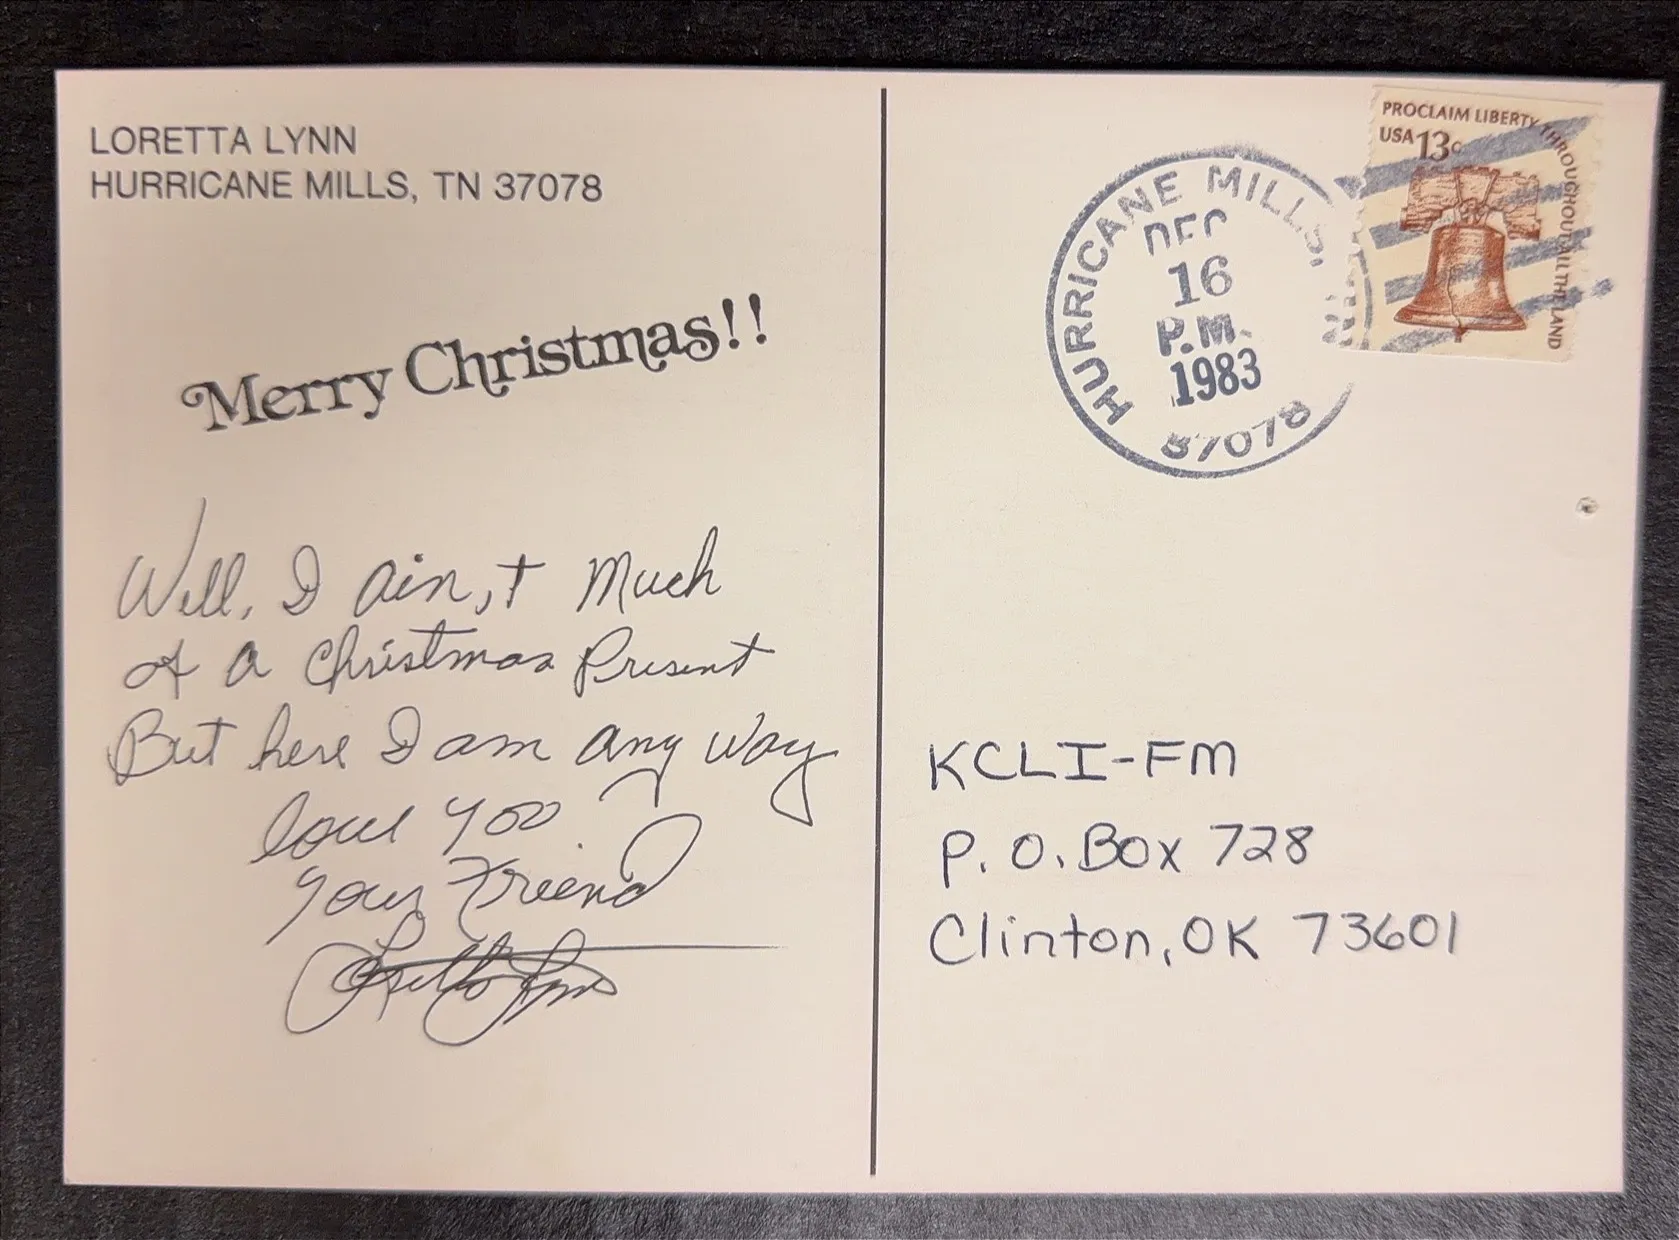 LORETTA LYNN
HURRICANE MILLS, TN 37078
Merry Christmas!!
Well, I ain,t Much
of a Christmas Present
But here I am any way
love you
Your Friend
Loretta Lynn
HURRICANE MILLS, TN
DEC
16
P.M.
1983
37078
PROCLAIM LIBERTY THROUGHOUT ALL THE LAND
USA 13c
KCLI-FM
P.O. Box 728
Clinton, OK 73601